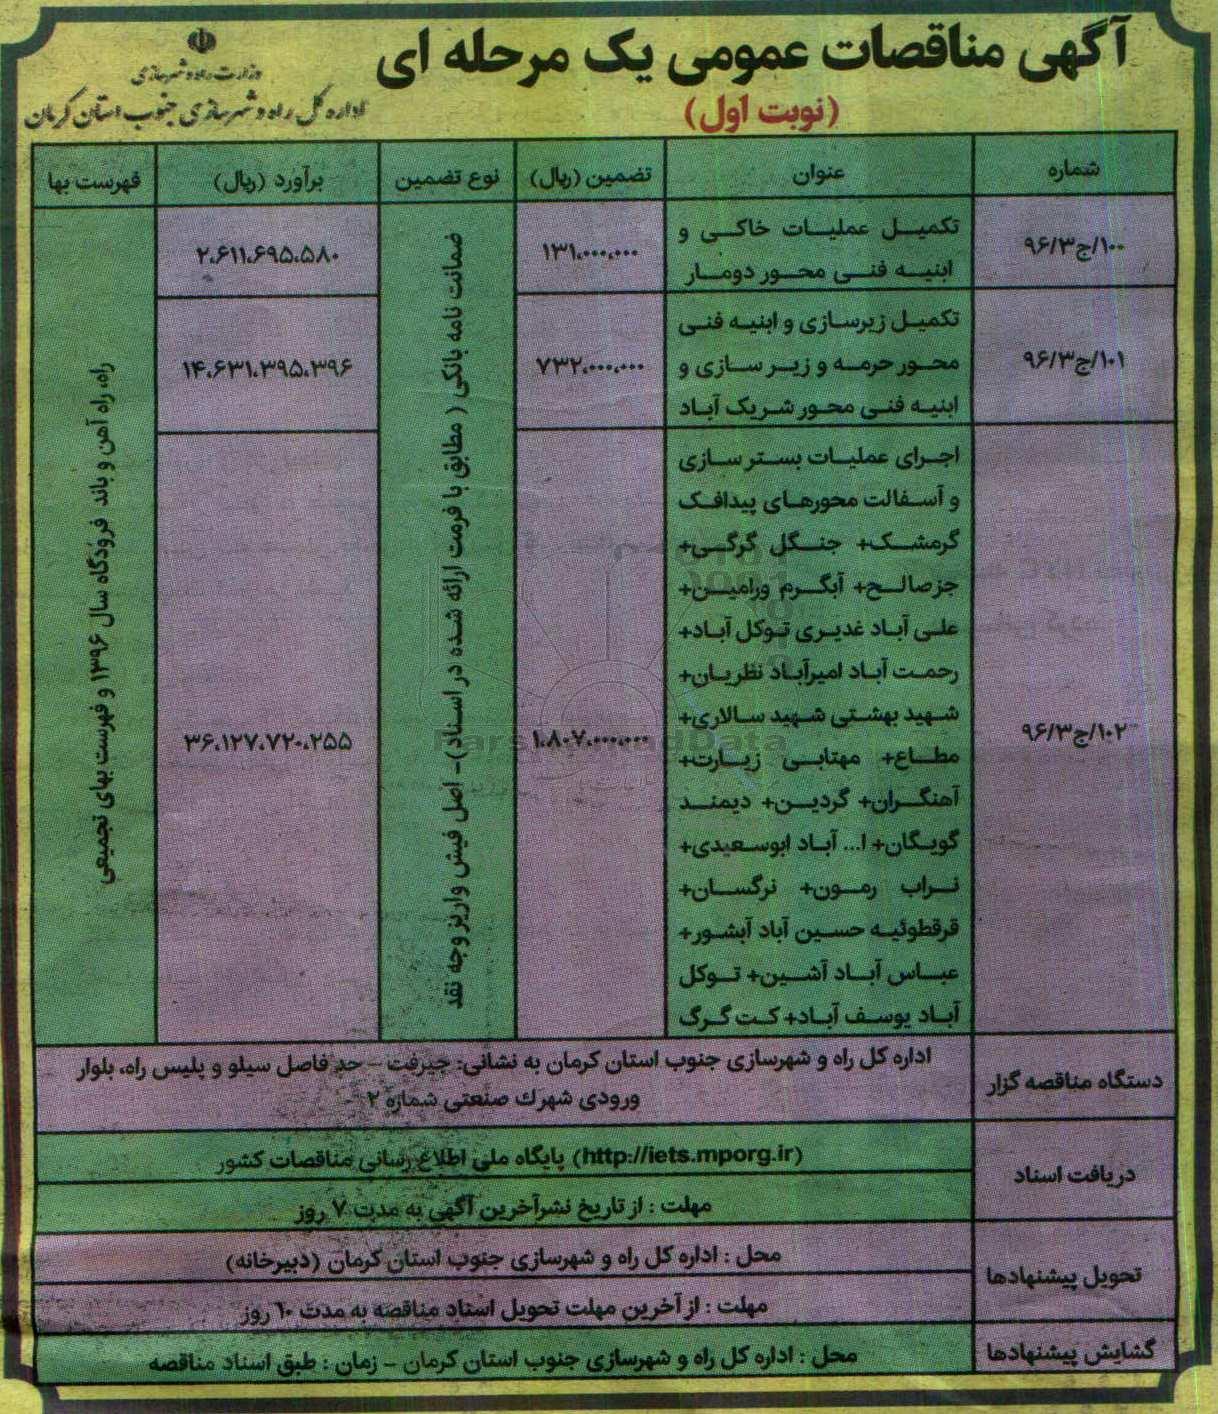 آگهی مناقصات عمومی یک مرحله ای
(نوبت اول)
وزارت راه و شهرسازی
اداره کل راه و شهرسازی جنوب استان کرمان
شماره
عنوان
تضمین (ریال)
نوع تضمین
برآورد (ریال)
فهرست بها
۹۶/۳ج/۱۰۰
تکمیل عملیات خاکی و
ابنیه فنی محور دومار
۱۳۱،۰۰۰،۰۰۰
۲،۶۱۱،۶۹۵،۵۸۰
۹۶/۳ج/۱۰۱
تکمیل زیرسازی و ابنیه فنی
محور حرمه و زیر سازی و
ابنیه فنی محور شریک آباد
۷۳۲،۰۰۰،۰۰۰
۱۴،۶۳۱،۳۹۵،۳۹۶
۹۶/۳ج/۱۰۲
اجرای عملیات بستر سازی
و آسفالت محورهای پیدافک
گرمشک+ جنگل گرگی+
جزصالح+ آبگرم ورامین+
علی آباد غدیری توکل آباد+
رحمت آباد امیرآباد نظریان+
شهید بهشتی شهید سالاری+
مطاع+ مهتابی زیارت+
آهنگران+ گردین+ دیمند
گویگان+ ا... آباد ابوسعیدی+
نراب رمون+ نرگسان+
قرقطوئیه حسین آباد آبشور+
عباس آباد آشین+ توکل
آباد یوسف آباد+ کت گرگ
۱،۸۰۷،۰۰۰،۰۰۰
۳۶،۱۲۷،۷۲۰،۲۵۵
ضمانت نامه بانکی ( مطابق با فرمت ارائه شده در اسناد)- اصل فیش واریز وجه نقد
راه، راه آهن و باند فرودگاه سال ۱۳۹۶ و فهرست بهای تجمیعی
دستگاه مناقصه گزار
اداره کل راه و شهرسازی جنوب استان کرمان به نشانی: جیرفت – حد فاصل سیلو و پلیس راه، بلوار
ورودی شهرك صنعتی شماره ۲
دریافت اسناد
(http://iets.mporg.ir) پایگاه ملی اطلاع رسانی مناقصات کشور
مهلت : از تاریخ نشرآخرین آگهی به مدت ۷ روز
تحویل پیشنهادها
محل : اداره کل راه و شهرسازی جنوب استان کرمان (دبیرخانه)
مهلت : از آخرین مهلت تحویل اسناد مناقصه به مدت ۱۰ روز
گشایش پیشنهادها
محل : اداره کل راه و شهرسازی جنوب استان کرمان – زمان : طبق اسناد مناقصه